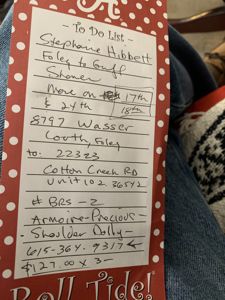 A
- To Do List -
Stephanie Hibbett
Foley to Gulf
Shores
Move on 17th
& 24th 18th
8797 Wasser
Court, Foley
to: 22323
Cotton Creek RD
Unit 102 36542
# BRS - 2
Armoire - Precious -
Shoulder Dolly -
615-364-9317 ←
$127.00 x 3 -
Roll Tide!